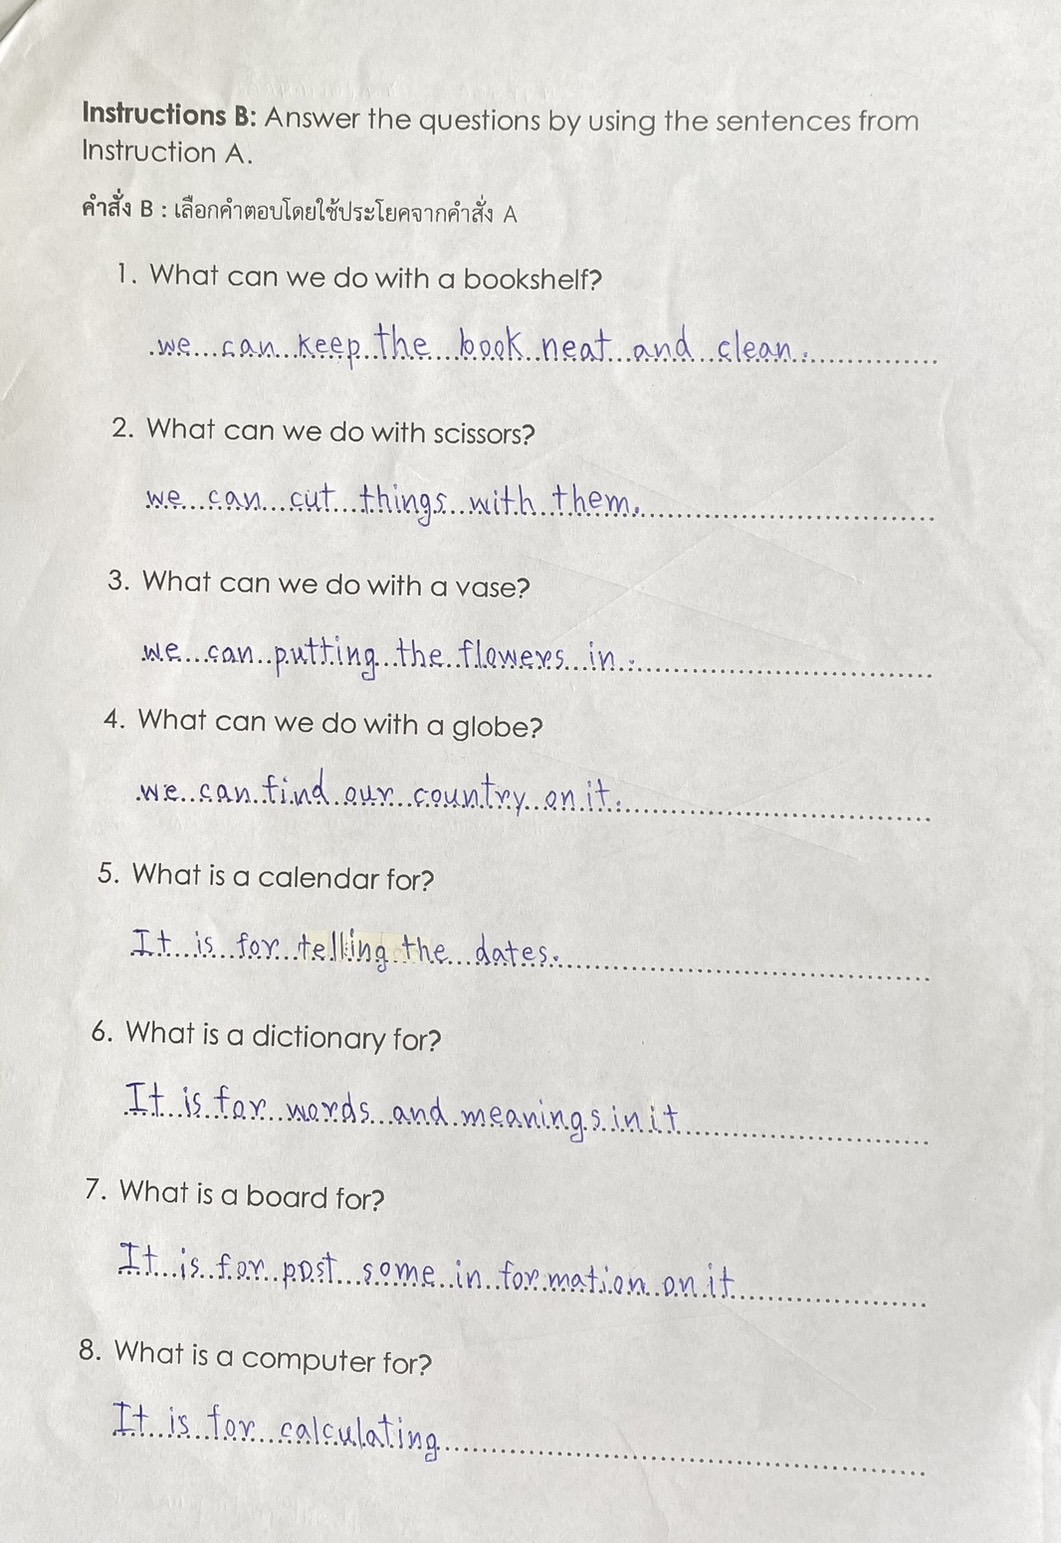 Instructions B: Answer the questions by using the sentences from
Instruction A.
คำสั่ง B : เลือกคำตอบโดยใช้ประโยคจากคำสั่ง A
1. What can we do with a bookshelf?
we can keep the book neat and clean.
2. What can we do with scissors?
we can cut things with them.
3. What can we do with a vase?
we can putting the flowers in.
4. What can we do with a globe?
we can find our country on it.
5. What is a calendar for?
It is for telling the dates.
6. What is a dictionary for?
It is for words and meanings in it
7. What is a board for?
It is for post some in for mation on it
8. What is a computer for?
It is for calculating